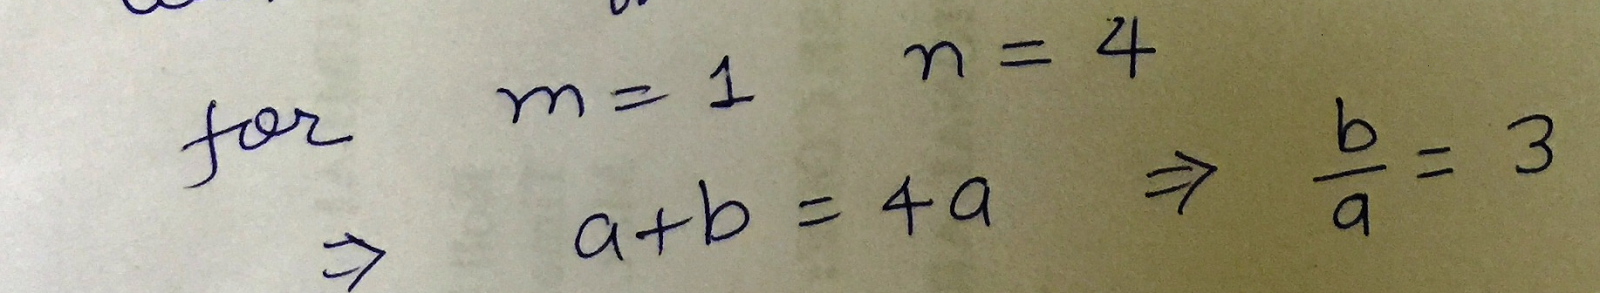 for m = 1 n = 4
⇒ a+b = 4a ⇒ b/a = 3